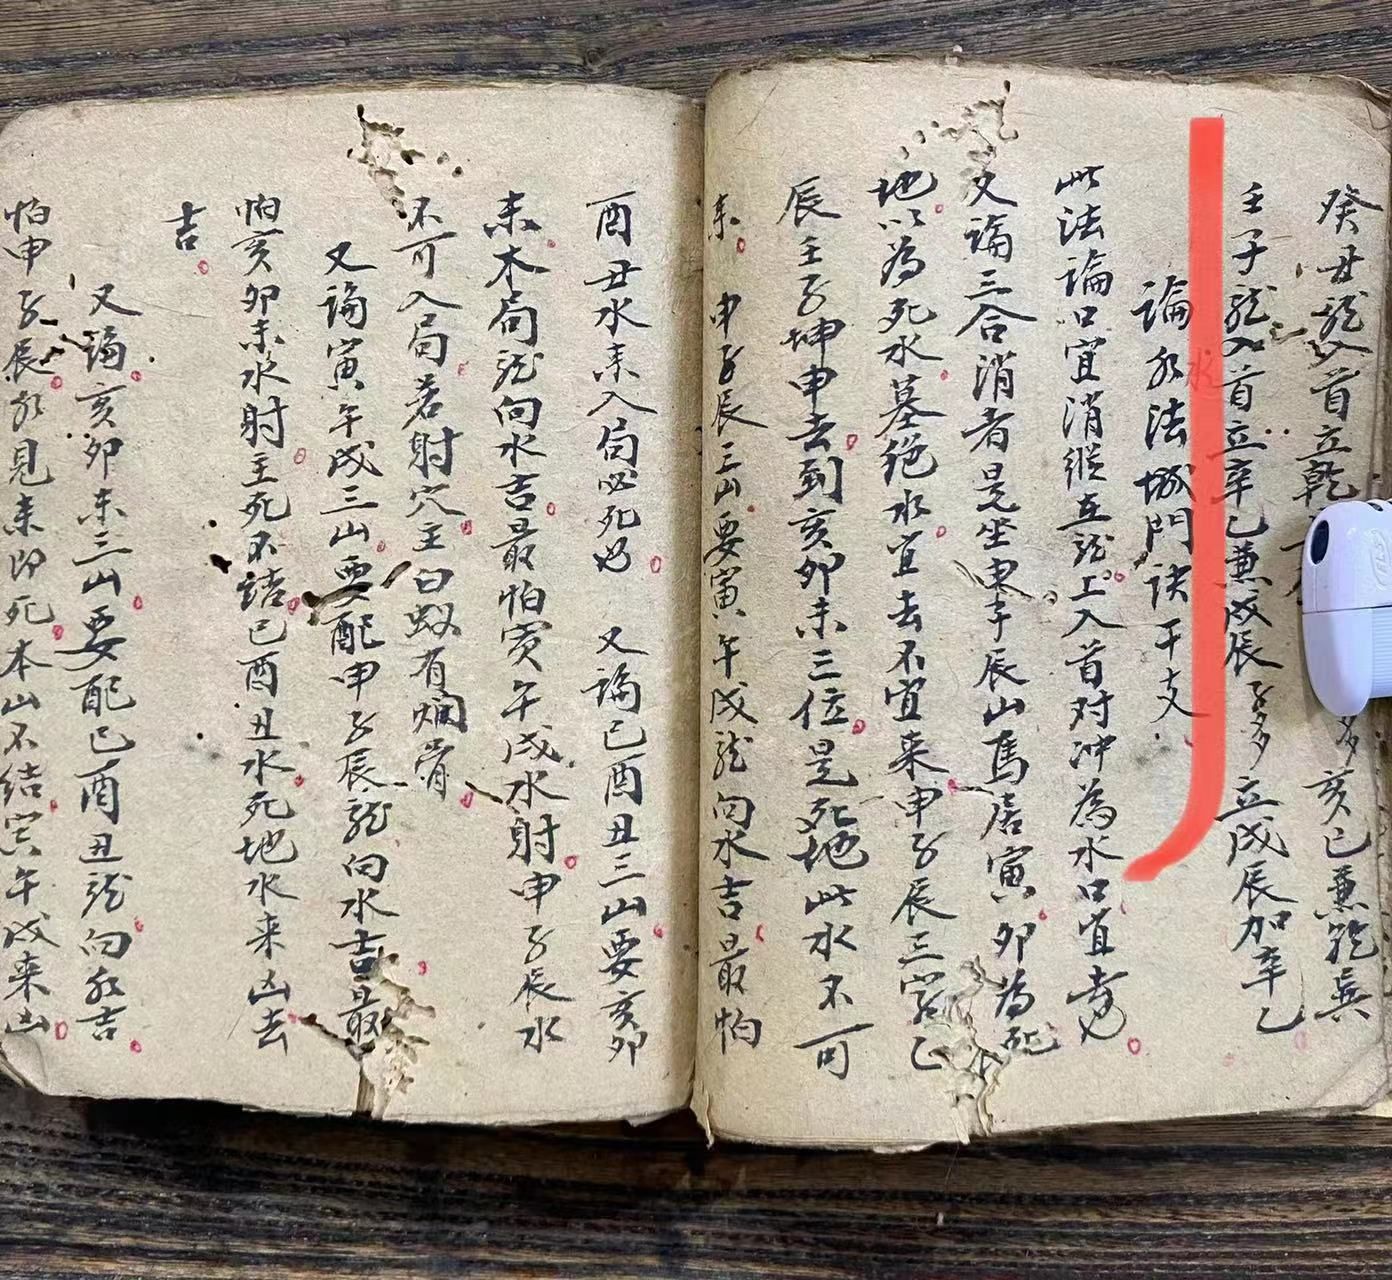 癸丑龍入首立乾亥已兼乾巽
壬子龍入首立辛乙兼戌辰多立戌辰加辛乙
論水法城門訣干支
水
此法論口宜消縱在龍上入首对冲為水口宜
又論三合消者是坐東辛辰山馬居寅卯為死
地以為死水墓绝水宜去不宜来申子辰三宮乙
辰壬子坤申去到亥卯未三位是死地此水不可
来 申子辰三山要寅午戌龍向水吉最怕
酉丑水来入局必死也 又論巳酉丑三山要亥卯
未木局龍向水吉最怕寅午戌水射申子辰水
不可入局若射穴主白蚁有爛骨
又論寅午戌三山要配申子辰龍向水吉最
怕亥卯未水射主死不結巳酉丑水死地水来凶去
吉
又論亥卯未三山要配巳酉丑龍向水吉
怕申子辰水見来即死本山不结寅午戌来山